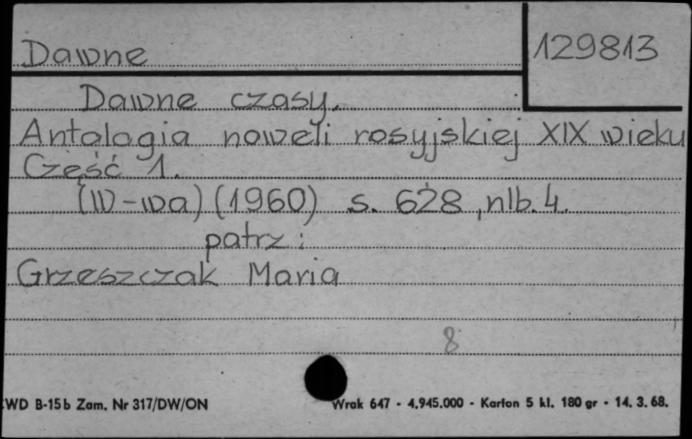 Dawne
129813
Dawne czasy.
Antologia noweli rosyjskiej XIX wieku
Część 1.
(W-wa) (1960) s. 628, nlb. 4.
patrz:
Grzeszczak Maria
8
WD B-15b Zam. Nr 317/DW/ON
Wrak 647 - 4.945.000 - Karton 5 kl. 180 gr - 14. 3. 68.